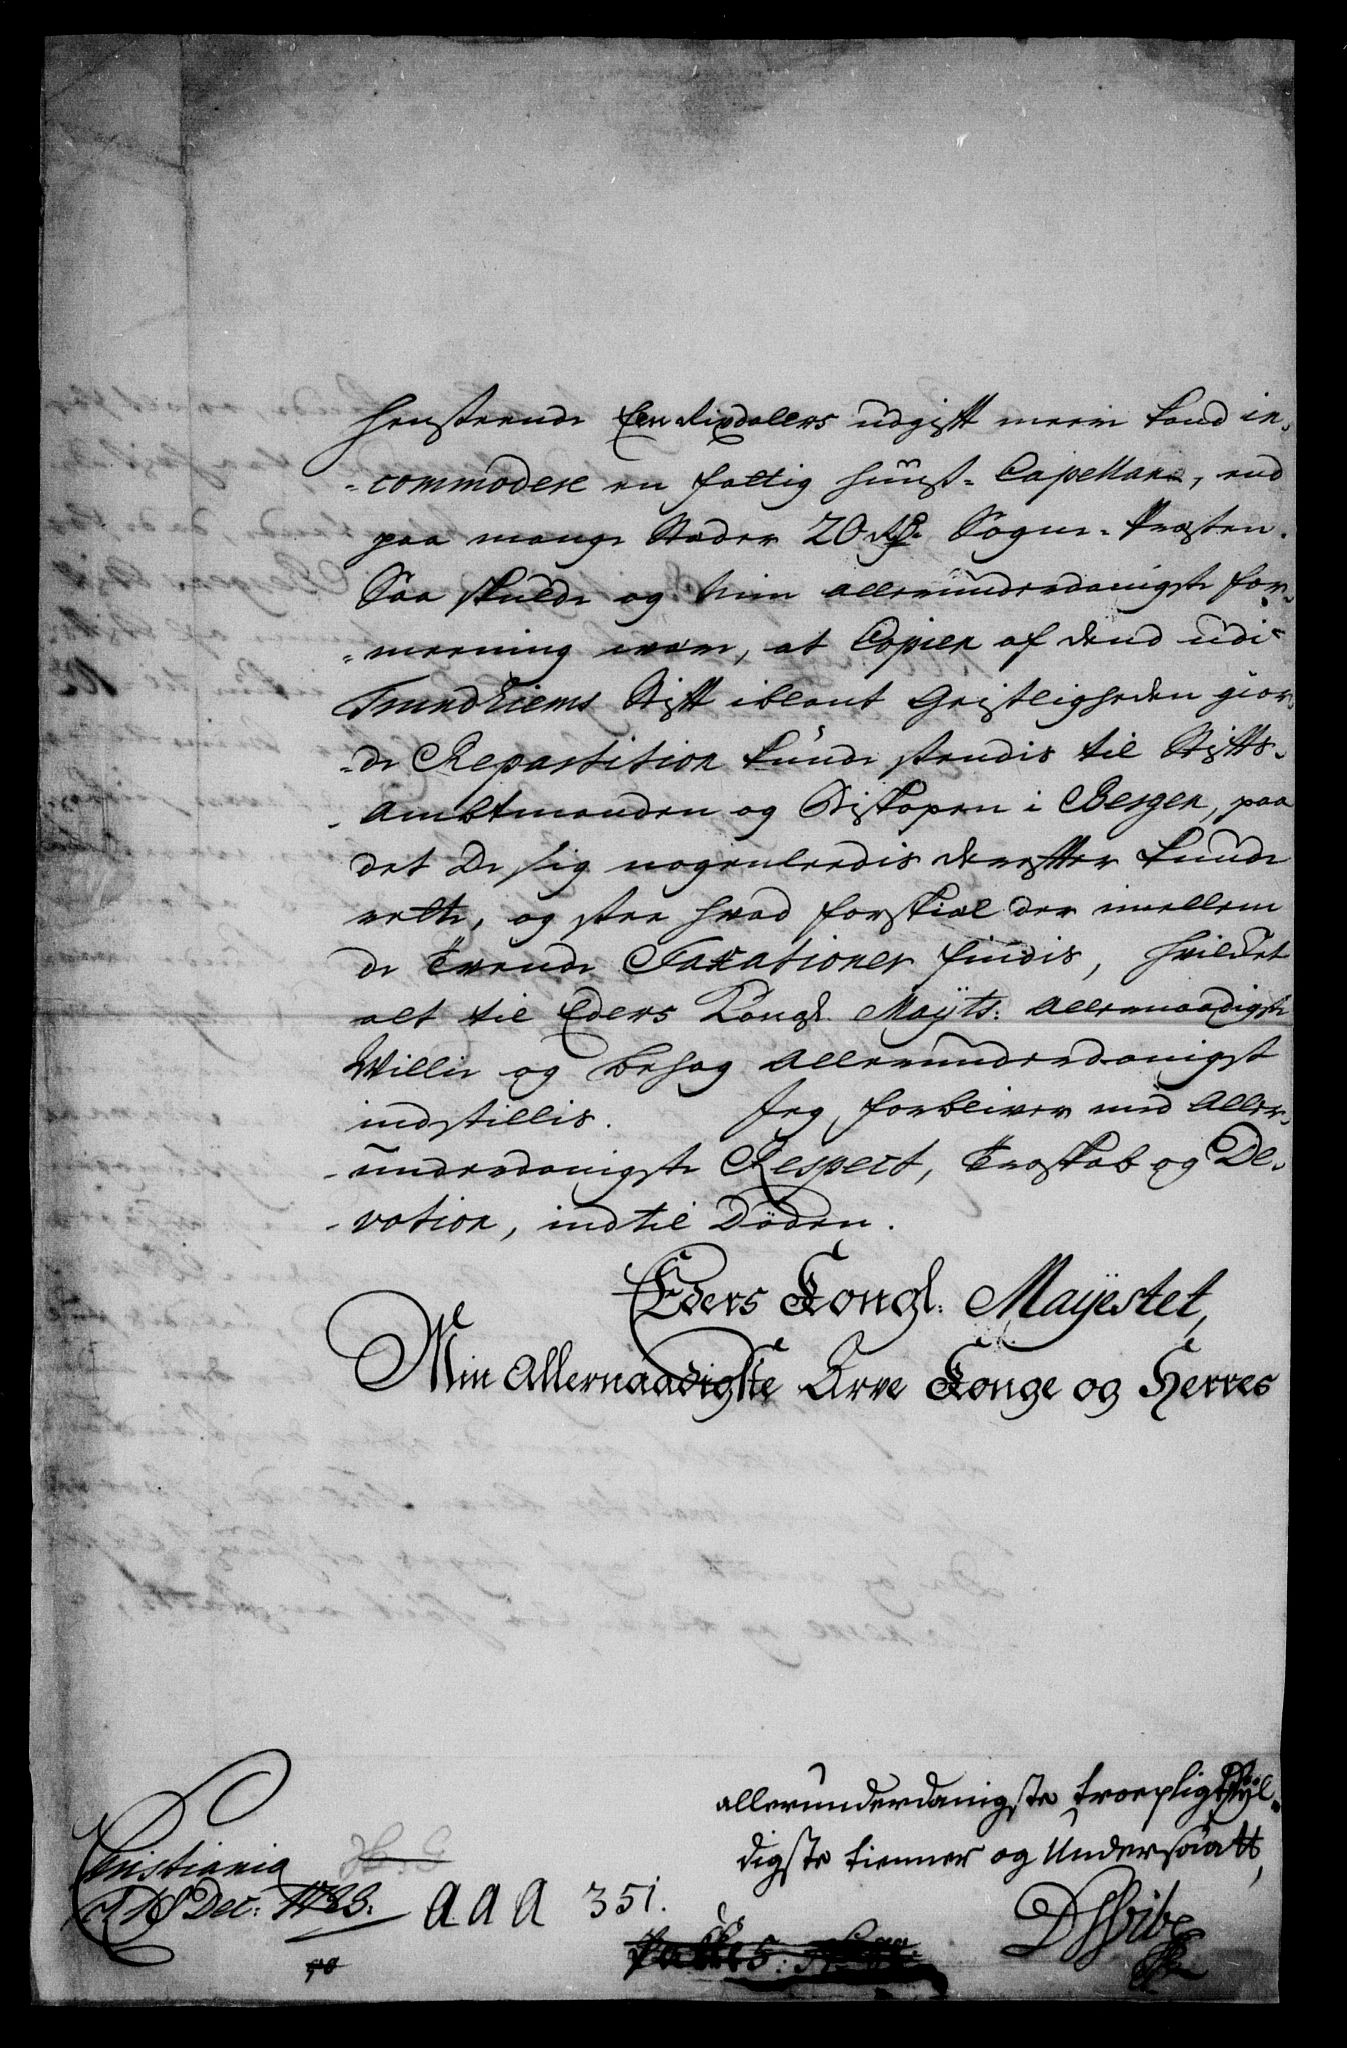 henseende Een Rixdalers udgift meere kand in-
-commodere en fattig huus-Capellan, end
paa mange Stæder 20 Rdr. Sogne-Præsten.
Saa skulde og min allerunderdanigste for-
-meening være, at Copien af dend udi
Trundhiems Stift iblant Geistligheden gior-
-de Repartition kunde sendis til Stifts-
-Ambtmanden og Biskopen i Bergen, paa
det De sig nogenleedis derefter kunde
rette, og see hvad forskiel der imellem
de tvende Taxationer findis, hvilcket
alt til Eders Kongl. Mayts: allernaadigste
Willie og behag allerunderdanigst
indstillis. Jeg forbliver med aller-
-underdanigste Respect, Troskab og De-
-votion, indtil Døden.
Eders Kongl: Mayestet,
Min Allernaadigste Arve Konge og Herres
allerunderdanigste troepligtskyl-
digste tienner og Undersaatt,
Christiania
d. 18 Dec: 1733.
a a a 351.
DWibe